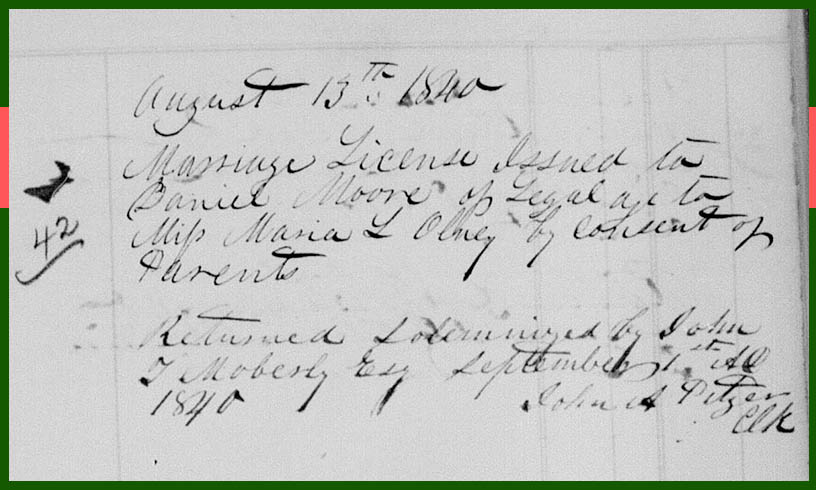 August 13th 1840
Marriage License Issued to
Daniel Moore of Legal age to
42
Miss Maria L Olney by Consent of
Parents
Returned Solemnized by John
T Moberly Esq September 1st AD
1840 John A Pitzer
Clk